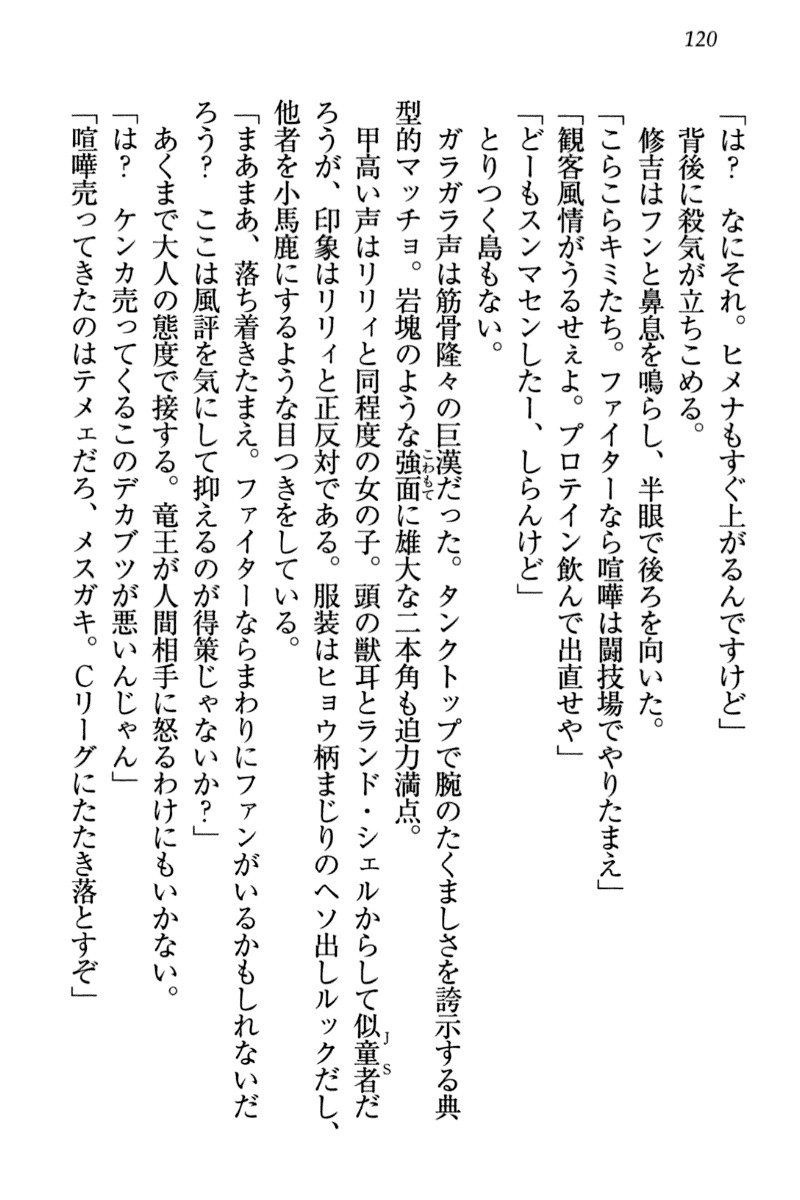 120
「は？　なにそれ。ヒメナもすぐ上がるんですけど」
背後に殺気が立ちこめる。
修吉はフンと鼻息を鳴らし、半眼で後ろを向いた。
「こらこらキミたち。ファイターなら喧嘩は闘技場でやりたまえ」
「観客風情がうるせぇよ。プロテイン飲んで出直せや」
「どーもスンマセンしたー、しらんけど」
とりつく島もない。
ガラガラ声は筋骨隆々の巨漢だった。タンクトップで腕のたくましさを誇示する典
型的マッチョ。岩塊のような強面に雄大な二本角も迫力満点。
こわもて
甲高い声はリリィと同程度の女の子。頭の獣耳とランド・シェルからして似童者だ
JS
ろうが、印象はリリィと正反対である。服装はヒョウ柄まじりのヘソ出しルックだし、
他者を小馬鹿にするような目つきをしている。
「まあまあ、落ち着きたまえ。ファイターならまわりにファンがいるかもしれないだ
ろう？　ここは風評を気にして抑えるのが得策じゃないか？」
あくまで大人の態度で接する。竜王が人間相手に怒るわけにもいかない。
「は？　ケンカ売ってくるこのデカブツが悪いんじゃん」
「喧嘩売ってきたのはテメェだろ、メスガキ。Cリーグにたたき落とすぞ」